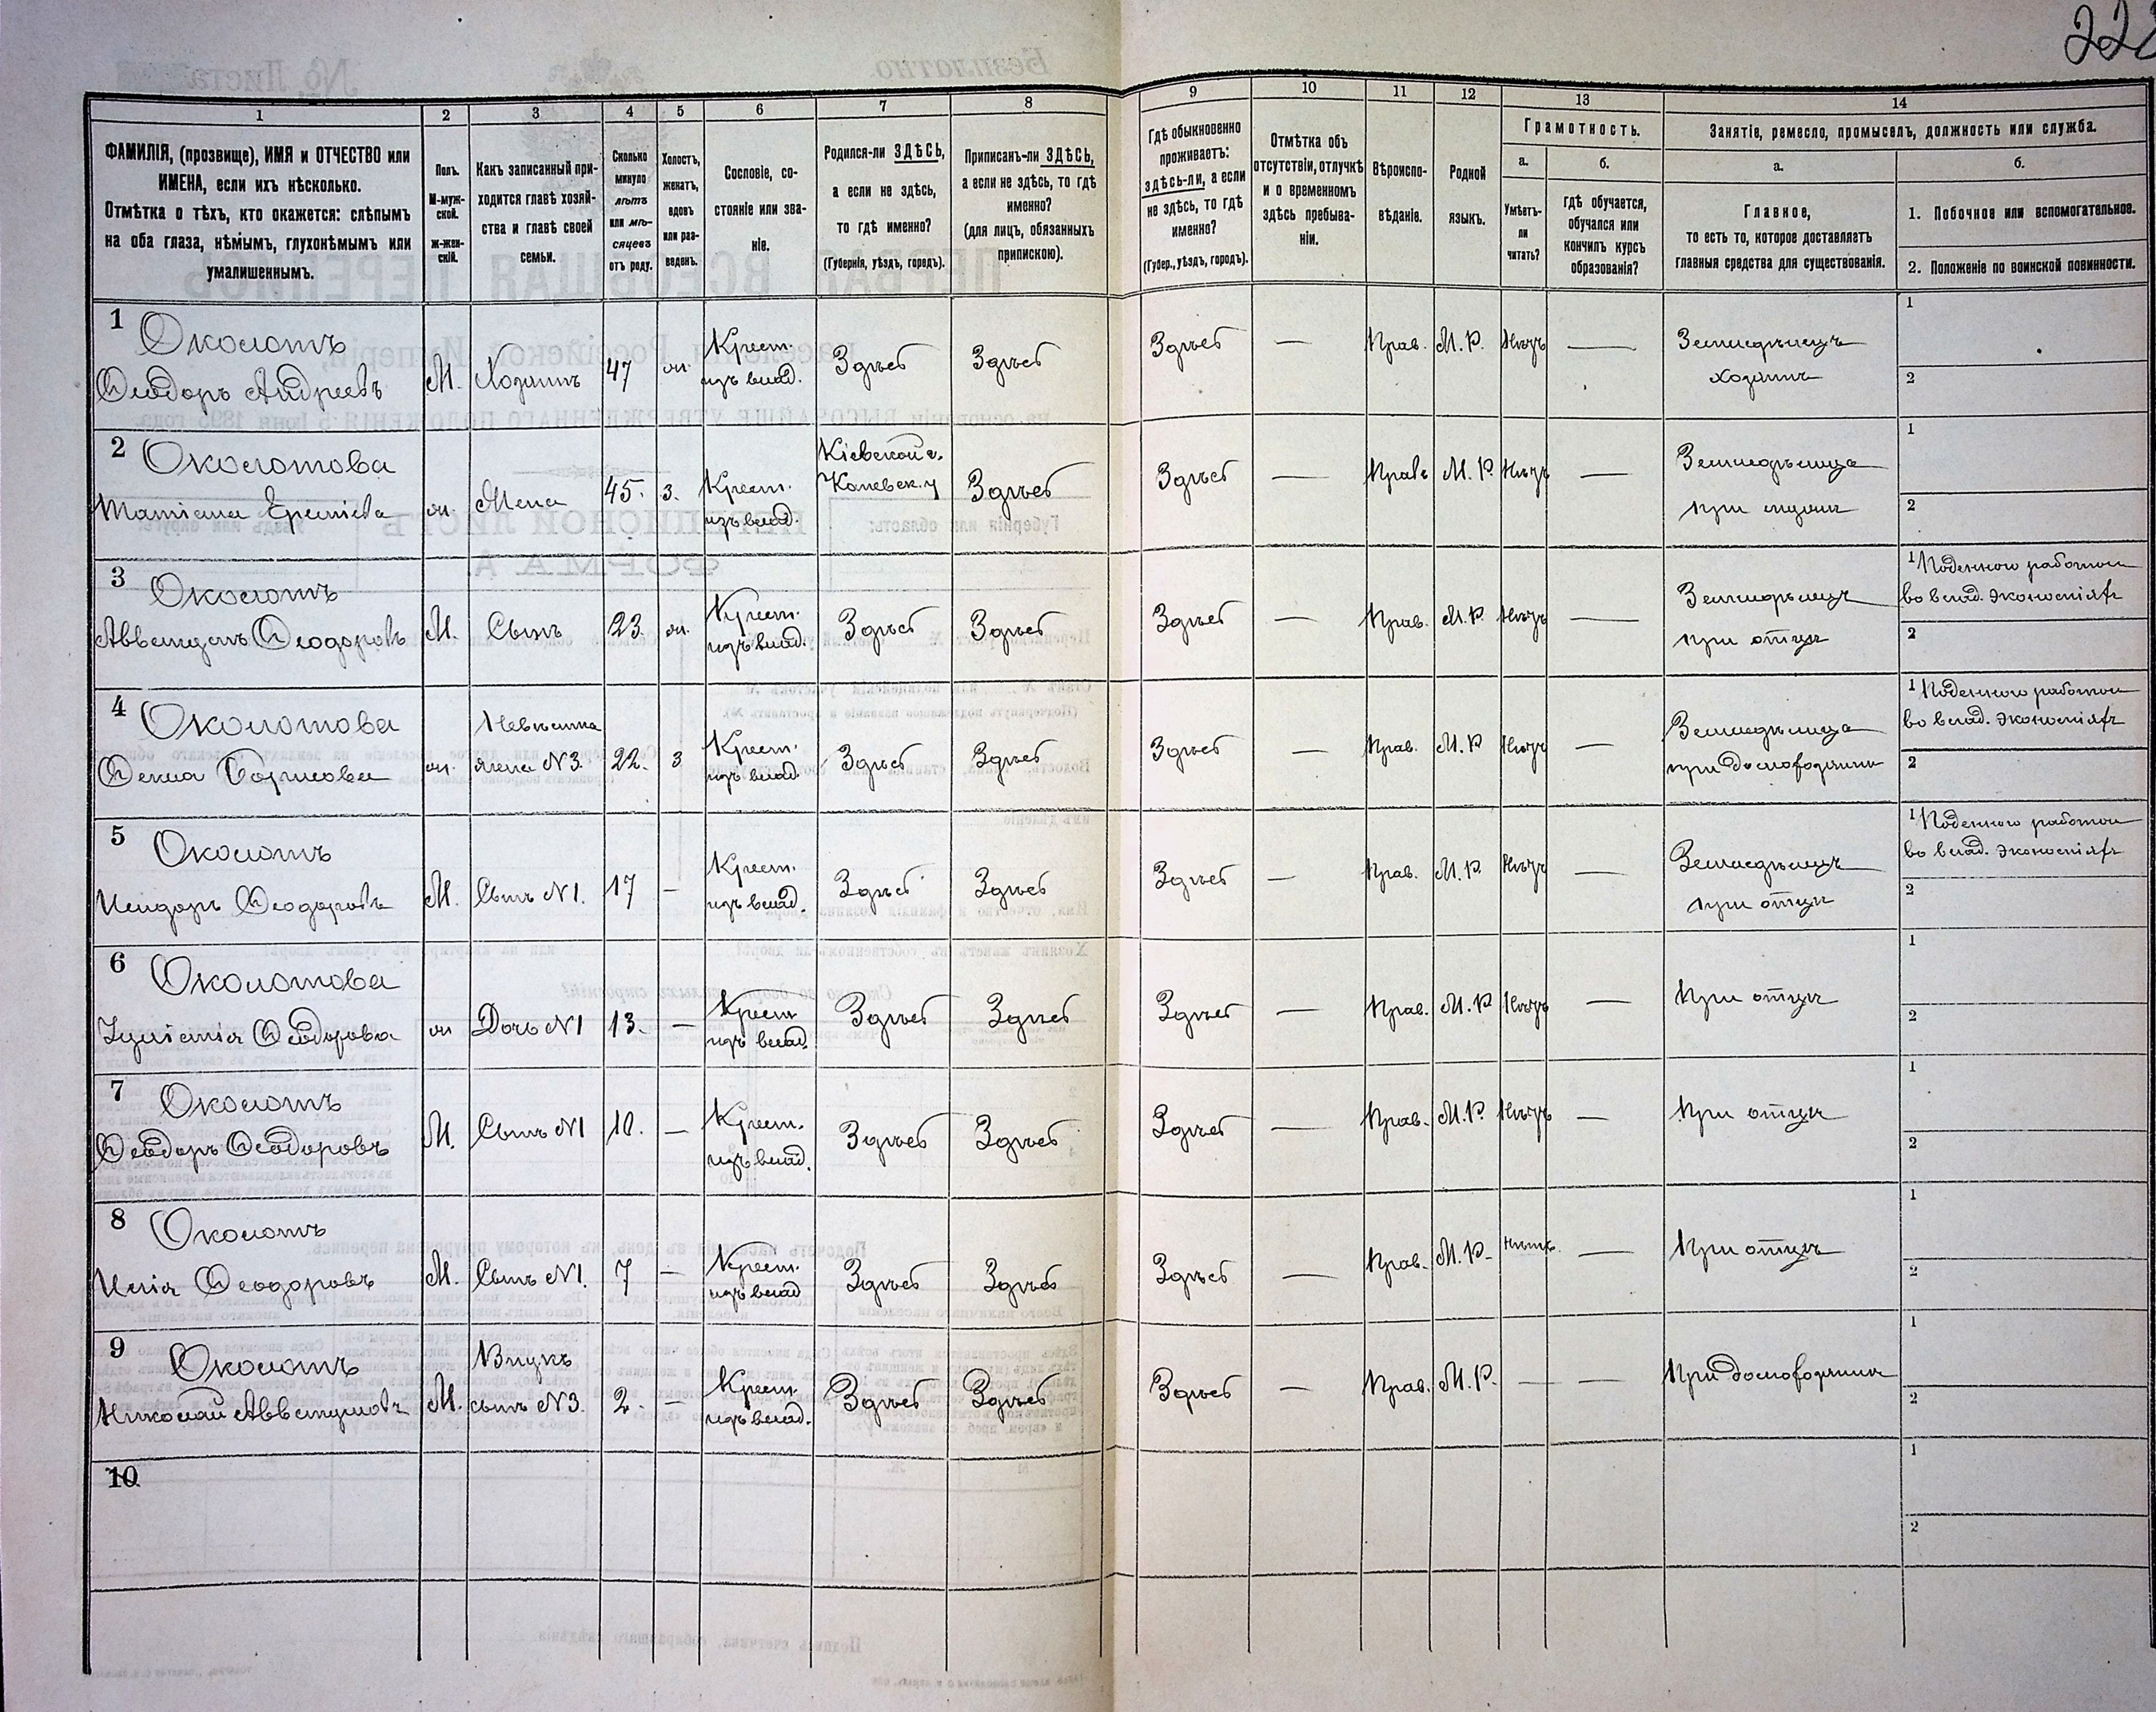 222
1 2 3 4 5 6 7 8 9 10 11 12 13 14
ФАМИЛІЯ, (прозвище), ИМЯ и ОТЧЕСТВО или
ИМЕНА, если ихъ нѣсколько.
Отмѣтка о тѣхъ, кто окажется: слѣпымъ
на оба глаза, нѣмымъ, глухонѣмымъ или
умалишеннымъ.
Полъ.
М-муж-
ской.
ж-жен-
скій.
Какъ записанный при-
ходится главѣ хозяй-
ства и главѣ своей
семьи.
Сколько
минуло
лѣтъ
или мѣ-
сяцевъ
отъ роду.
Холостъ,
женатъ,
вдовъ
или раз-
веденъ.
Сословіе, со-
стояніе или зва-
ніе.
Родился-ли ЗДѢСЬ,
а если не здѣсь,
то гдѣ именно?
(Губернія, уѣздъ, городъ).
Приписанъ-ли ЗДѢСЬ,
а если не здѣсь, то гдѣ
именно?
(для лицъ, обязанныхъ
припискою).
Гдѣ обыкновенно
проживаетъ:
здѣсь-ли, а если
не здѣсь, то гдѣ
именно?
(Губер., уѣздъ, городъ).
Отмѣтка объ
отсутствіи, отлучкѣ
и о временномъ
здѣсь пребыва-
ніи.
Вѣроиспо-
вѣданіе.
Родной
языкъ.
Грамотность.
а.
Умѣетъ-
ли
читать?
б.
гдѣ обучается,
обучался или
кончилъ курсъ
образованія?
Занятіе, ремесло, промыселъ, должность или служба.
а.
Главное,
то есть то, которое доставляетъ
главныя средства для существованія.
б.
1. Побочное или вспомогательное.
2. Положеніе по воинской повинности.
1 Околотъ
Ѳеодоръ Андреевъ
М. Хозяинъ 47 ж.
Крест.
изъ влад.
Здѣсь Здѣсь Здѣсь — Прав. М. Р. Нѣтъ —
Земледѣлецъ
хозяинъ
1
2
2 Околотова
Татіана Ереміева
ж. Жена 45. з.
Крест.
изъ влад.
Кіевской г.
Каневск. у
Здѣсь Здѣсь — Прав М. Р Нѣтъ —
Земледѣлица
при мужѣ
1
2
3 Околотъ
Аввакумъ Ѳеодоровъ
М. Сынъ 23. ж.
Крест.
изъ влад.
Здѣсь Здѣсь Здѣсь — Прав. М. Р. Нѣтъ —
Земледѣлецъ
при отцѣ
1 Поденною работою
во влад. экономіяхъ
2
4 Околотова
Ѳекла Борисова
ж.
Невѣстка
жена N3. 22. з
Крест.
изъ влад.
Здѣсь Здѣсь Здѣсь — Прав. М. Р Нѣтъ —
Земледѣлица
при домохозяинѣ
1 Поденною работою
во влад. экономіяхъ
2
5 Околотъ
Исидоръ Ѳеодоровъ
М. Сынъ N1. 17 —
Крест.
изъ влад.
Здѣсь Здѣсь Здѣсь — Прав. М. Р. Нѣтъ —
Земледѣлецъ
при отцѣ
1 Поденною работою
во влад. экономіяхъ
2
6 Околотова
Іуліанія Ѳеодорова
ж Дочь N1 13. —
Крест
изъ влад.
Здѣсь Здѣсь Здѣсь — Прав. М. Р Нѣтъ —
При отцѣ
1
2
7 Околотъ
Ѳеодоръ Ѳеодоровъ
М. Сынъ N1 10. —
Крест.
изъ влад.
Здѣсь Здѣсь Здѣсь — Прав. М. Р. Нѣтъ —
При отцѣ
1
2
8 Околотъ
Илія Ѳеодоровъ
М. Сынъ N1. 7 —
Крест.
изъ влад
Здѣсь Здѣсь Здѣсь — Прав. М. Р. Нѣтъ. —
При отцѣ
1
2
9 Околотъ
Николай Аввакумовъ
М.
Внукъ
сынъ N3. 2. —
Крест.
изъ влад.
Здѣсь Здѣсь Здѣсь — Прав. М. Р. — —
При домохозяинѣ
1
2
10
1
2